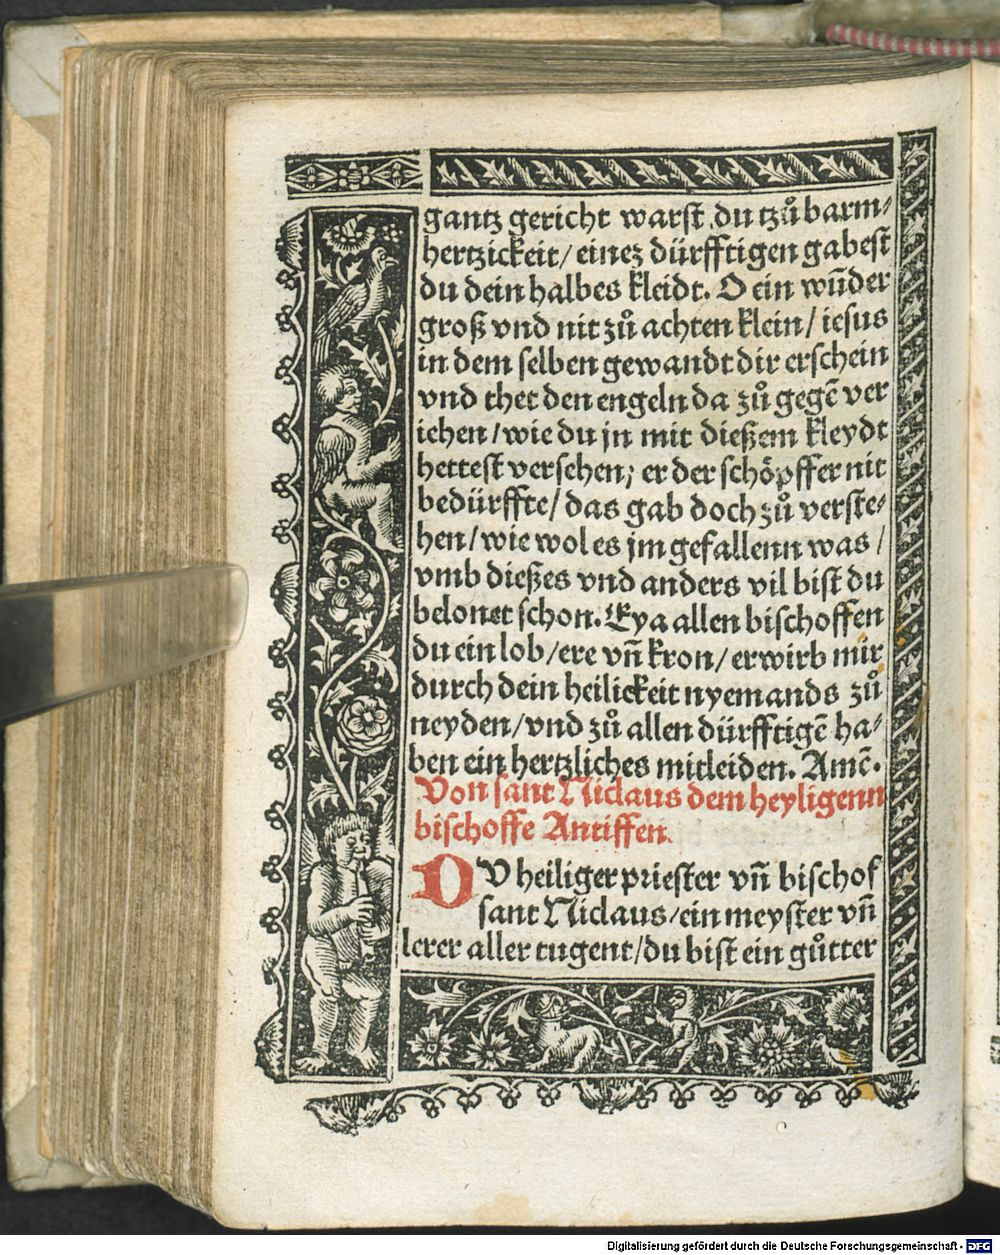 gantz gericht warst du tzů barm⸗
hertzickeit/ einez dürfftigen gabest
du dein halbes kleidt. O ein wūder
groß vnd nit zů achten klein/ iesus
in dem selben gewandt dir erschein
vnd thet den engeln da zů gegē ver
iehen/ wie du jn mit dießem kleydt
hettest versehen; er der schöpffer nit
bedürffte/ das gab doch zů verste⸗
hen/ wie wol es jm gefallenn was/
vmb dießes vnd anders vil bist du
belonet schon. Eya allen bischoffen
du ein lob/ ere vn̄ kron/ erwirb mir
durch dein heilickeit nyemands zů
neyden/ vnd zů allen dürfftigē ha⸗
ben ein hertzliches mitleiden. Amē.
Von sant Niclaus dem heyligenn
bischoffe Antiffen.
DV heiliger priester vn̄ bischof
sant Niclaus/ ein meyster vn̄
lerer aller tugent/ du bist ein gůtter
Digitalisierung gefördert durch die Deutsche Forschungsgemeinschaft - DFG